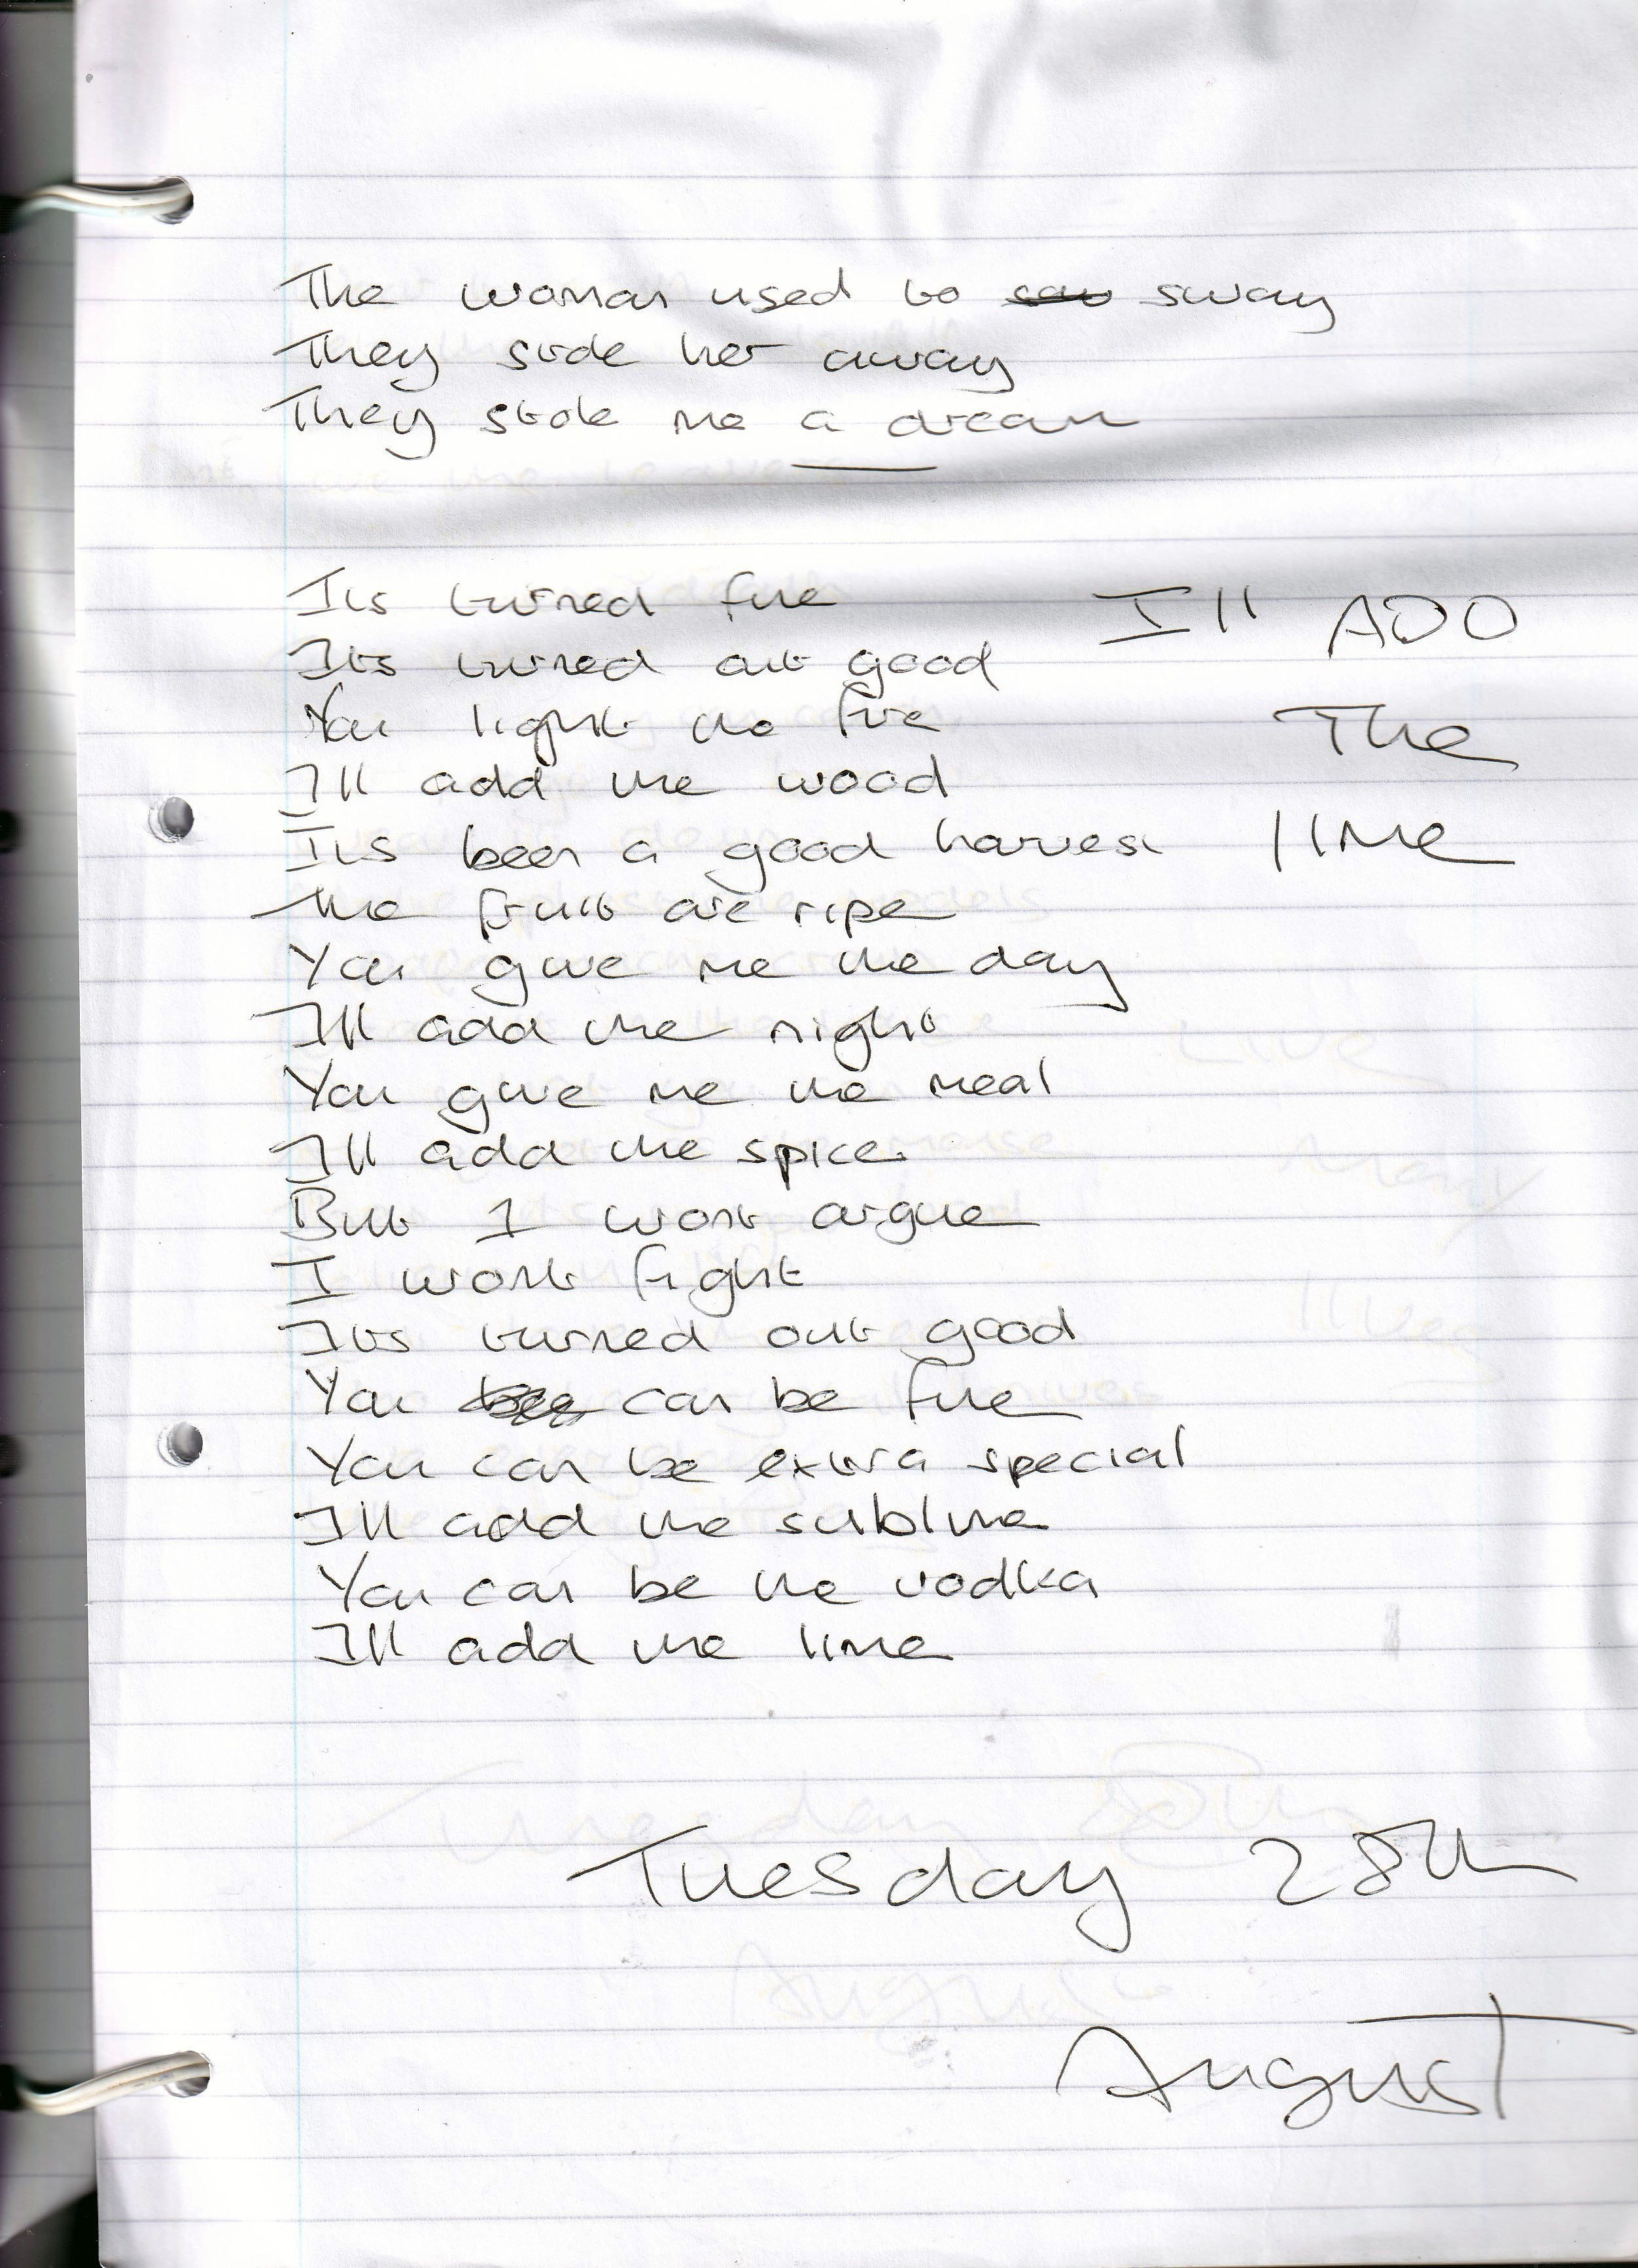 The woman used to sway
They stole her away
They stole me a dream
Its turned fine
Its turned out good
You light the fire
Ill add the wood
Its been a good harvest
The fruit are ripe
You give me the day
Ill add the night
You give me the meal
Ill add the spice.
But I wont argue
I wont fight
Its turned out good
You can be fine
You can be extra special
Ill add the sublime
You can be the vodka
Ill add the lime
I'll ADD
The
lime
Tuesday 28th
August